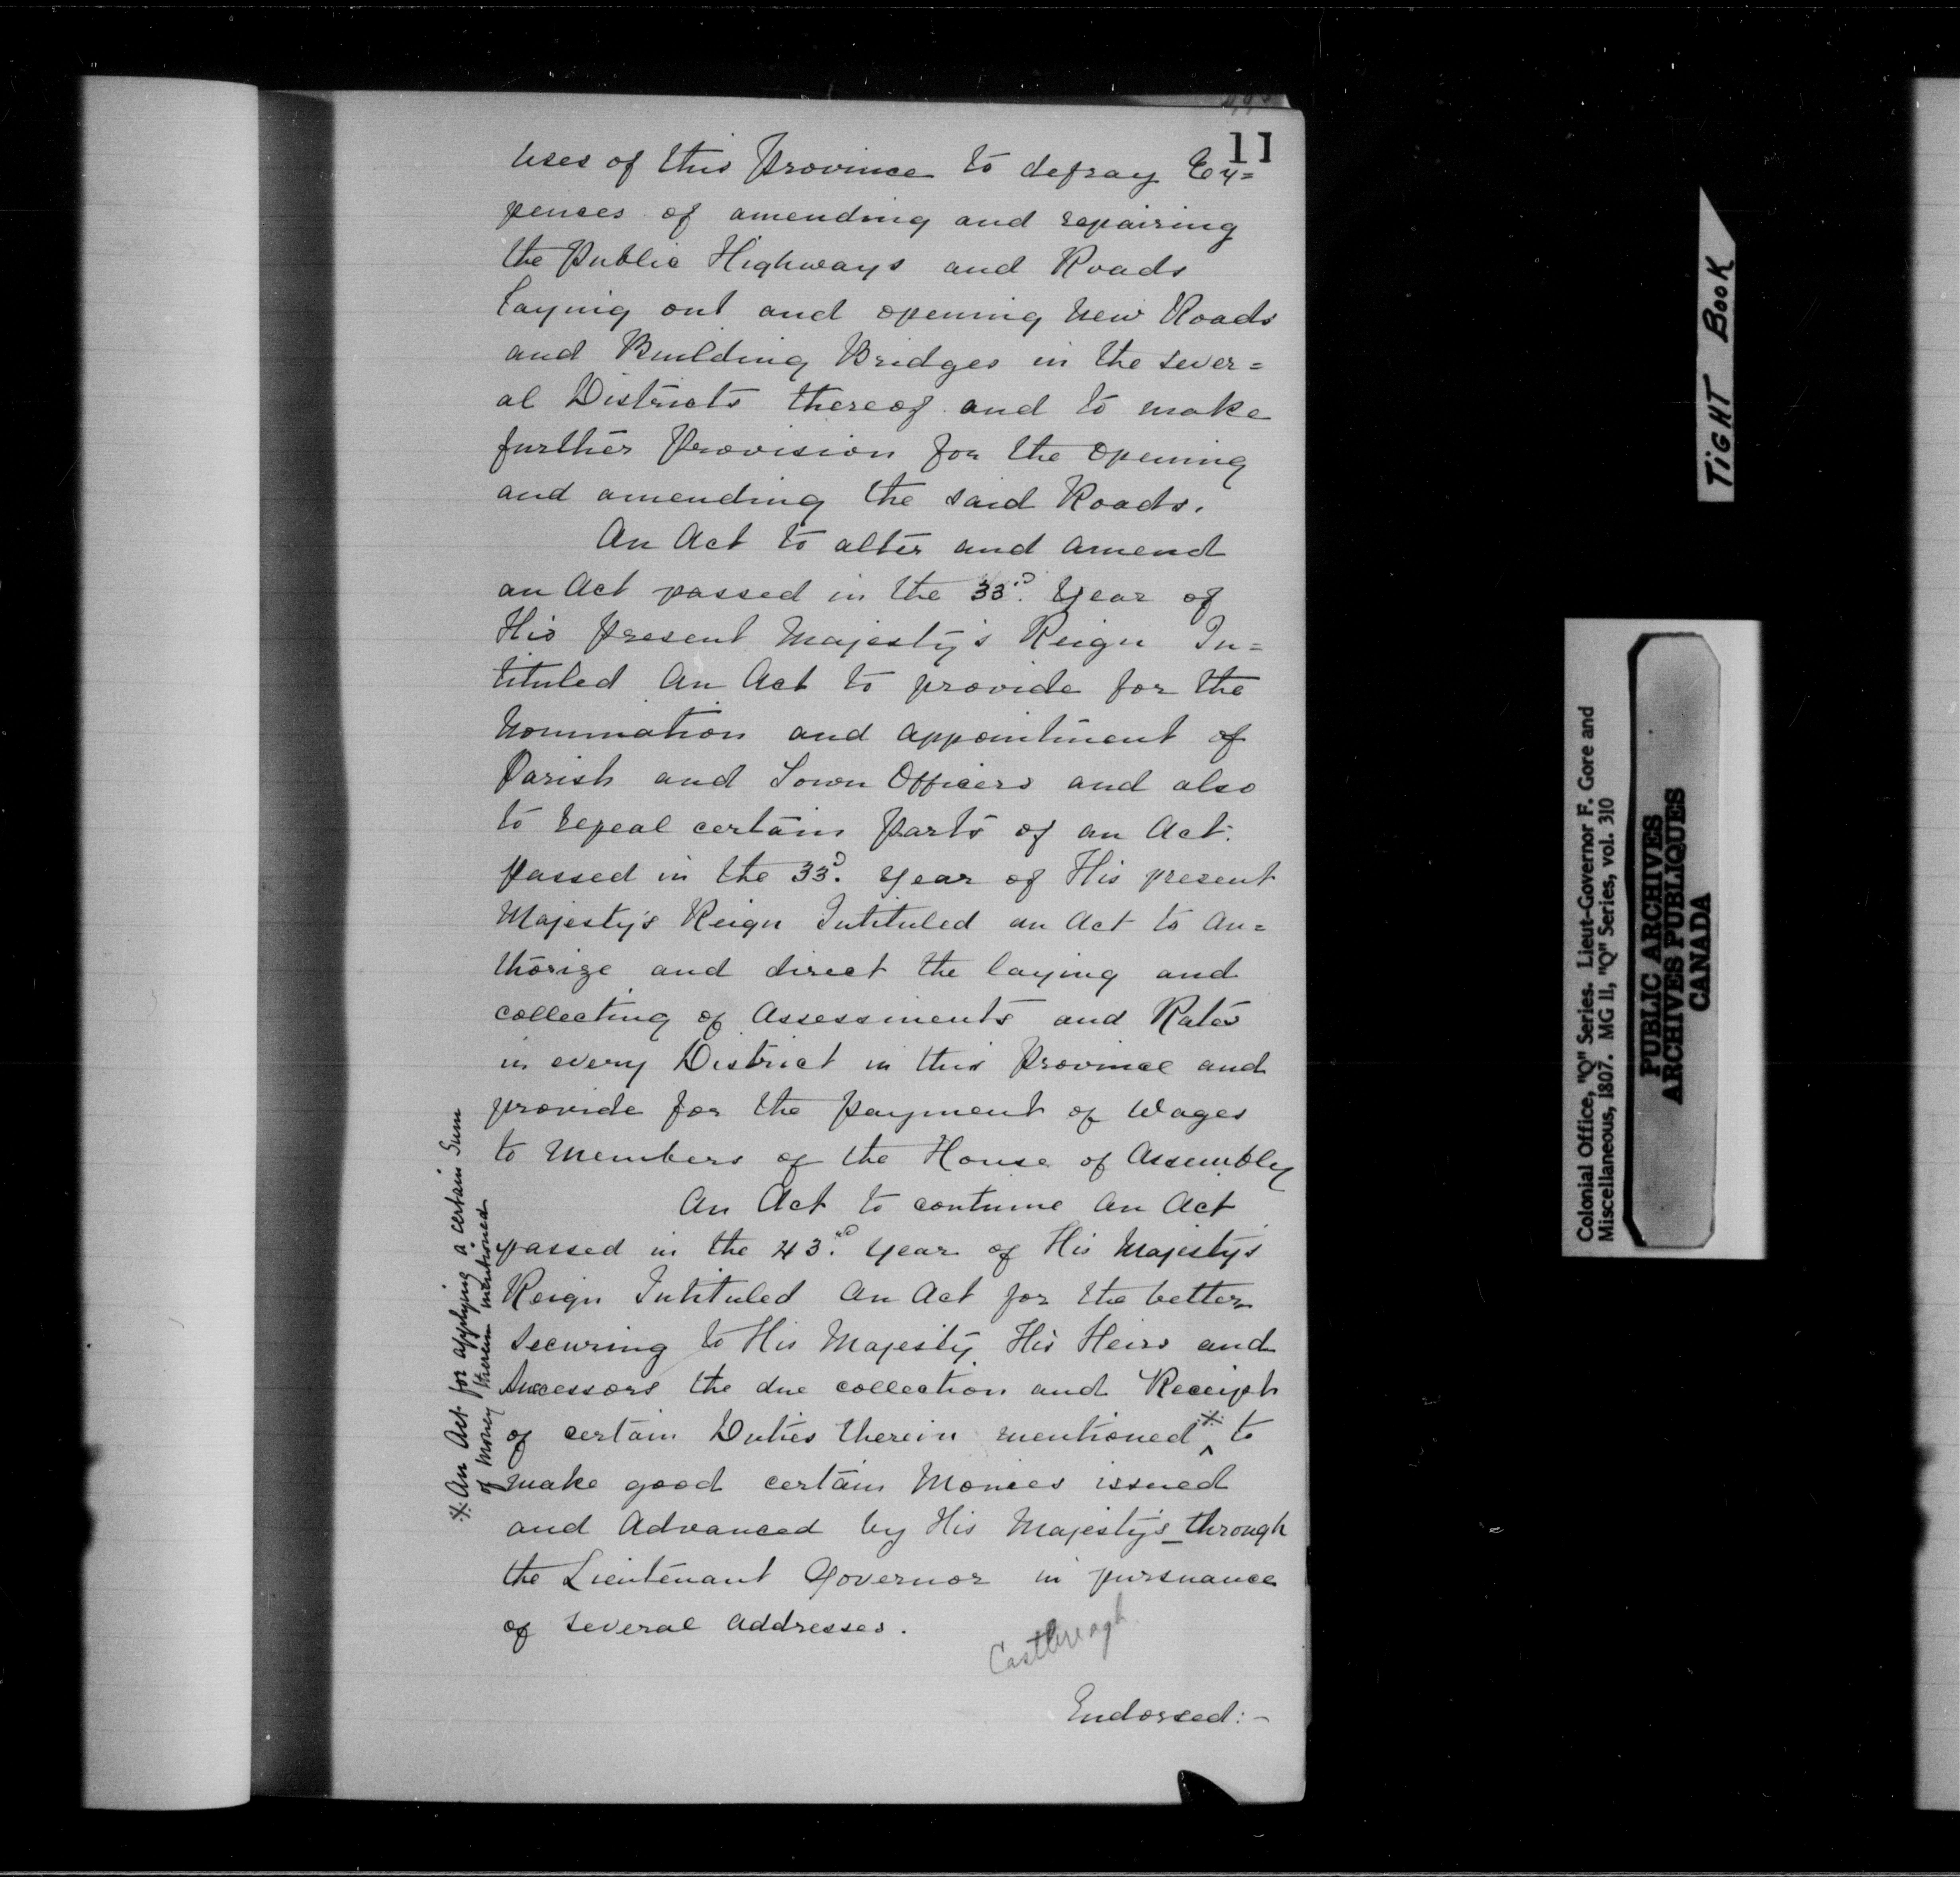 11
uses of this Province to defray Ex=
pences of amending and repairing
the Public Highways and Roads
laying out and opening new Roads
and Building Bridges in the sever=
al Districts thereof and to make
further Provision for the opening
and amending the said Roads.
An Act to alter and amend
an Act passed in the 33.d Year of
His present Majesty's Reign In=
tituled An Act to provide for the
Nomination and appointment of
Parish and Town Officers and also
to repeal certain Parts of an Act.
passed in the 33.d year of His present
Majesty's Reign Intituled an Act to au=
thorize and direct the laying and
collecting of Assessments and Rates
in every District in this Province and
provide for the payment of Wages
to Members of the House of Assembly
An Act to continue An Act
passed in the 43.rd year of His Majesty's
Reign Intituled An Act for the better
securing to His Majesty His Heirs and
Successors the due collection and Receipt
of certain Duties therein mentioned * ^ to
make good certain Monies issued
and Advanced by His Majesty's through
the Lieutenant Governor in pursuance
of several Addresses.
Castlereagh
Endorsed:-
* An Act for applying a certain Sum
of money therein mentioned
TIGHT BOOK
Colonial Office, "Q" Series. Lieut-Governor F. Gore and
Miscellaneous, 1807. MG 11, "Q" Series, vol. 310
PUBLIC ARCHIVES
ARCHIVES PUBLIQUES
CANADA